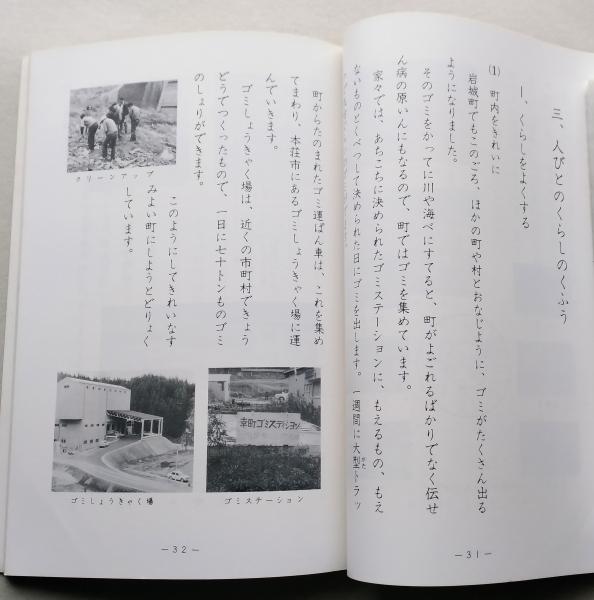 三、人びとのくらしのくふう
1、くらしをよくする
(1) 町内をきれいに
岩城町でもこのごろ、ほかの町や村とおなじように、ゴミがたくさん出る
ようになりました。
そのゴミをかってに川や海べにすてると、町がよごれるばかりでなく伝せ
ん病の原いんにもなるので、町ではゴミを集めています。
家々では、あちこちに決められたゴミステーションに、もえるもの、もえ
ないものとくべつして決められた日にゴミを出します。一週間に大型トラッ
がた
—31—
町からたのまれたゴミ運ぱん車は、これを集め
てまわり、本荘市にあるゴミしょうきゃく場に運
んでいきます。
ゴミしょうきゃく場は、近くの市町村できょう
どうでつくったもので、一日に七十トンものゴミ
のしょりができます。
クリーンアップ
このようにしてきれいなす
みよい町にしようとどりょく
しています。
幸町ゴミステイション
ゴミステーション
ゴミしょうきゃく場
—32—